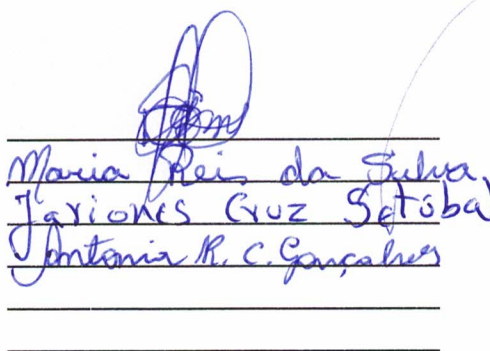 Maria Reis da Silva
Jariones Cruz Setúbal
Antonia R. C. Gonçalves